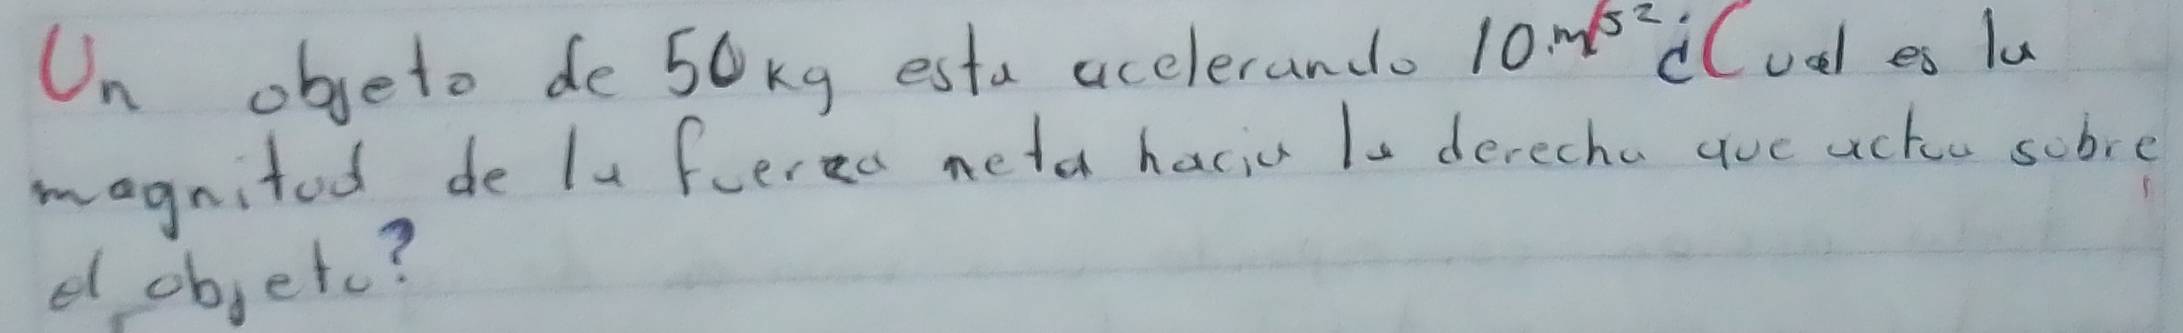 Un objeto de 50kg esta acelerando 10.m/s² ¿Cual es la
magnitud de la fuerza neta hacia la derecha que actua sobre
el objeto?